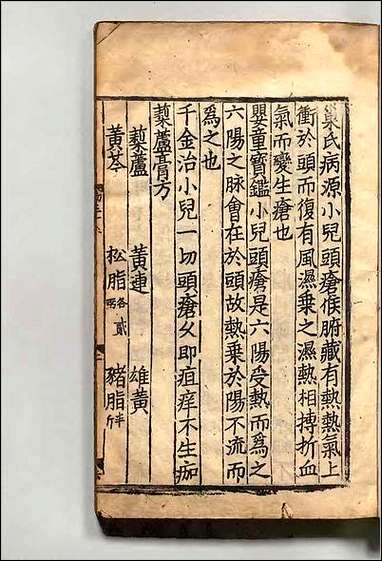 巢氏病源小兒頭瘡候腑藏有熱熱氣上
衝於頭而復有風濕乗之濕熱相搏折血
氣而變生瘡也
嬰童寳鑑小兒頭瘡是六陽受熱而爲之
六陽之脉會在於頭故熱乗於陽不流而
爲之也
千金治小兒一切頭瘡久即疽痒不生痂
藜蘆膏方
藜蘆 黃連 雄黃
黃芩 松脂各貳兩 豬脂半斤